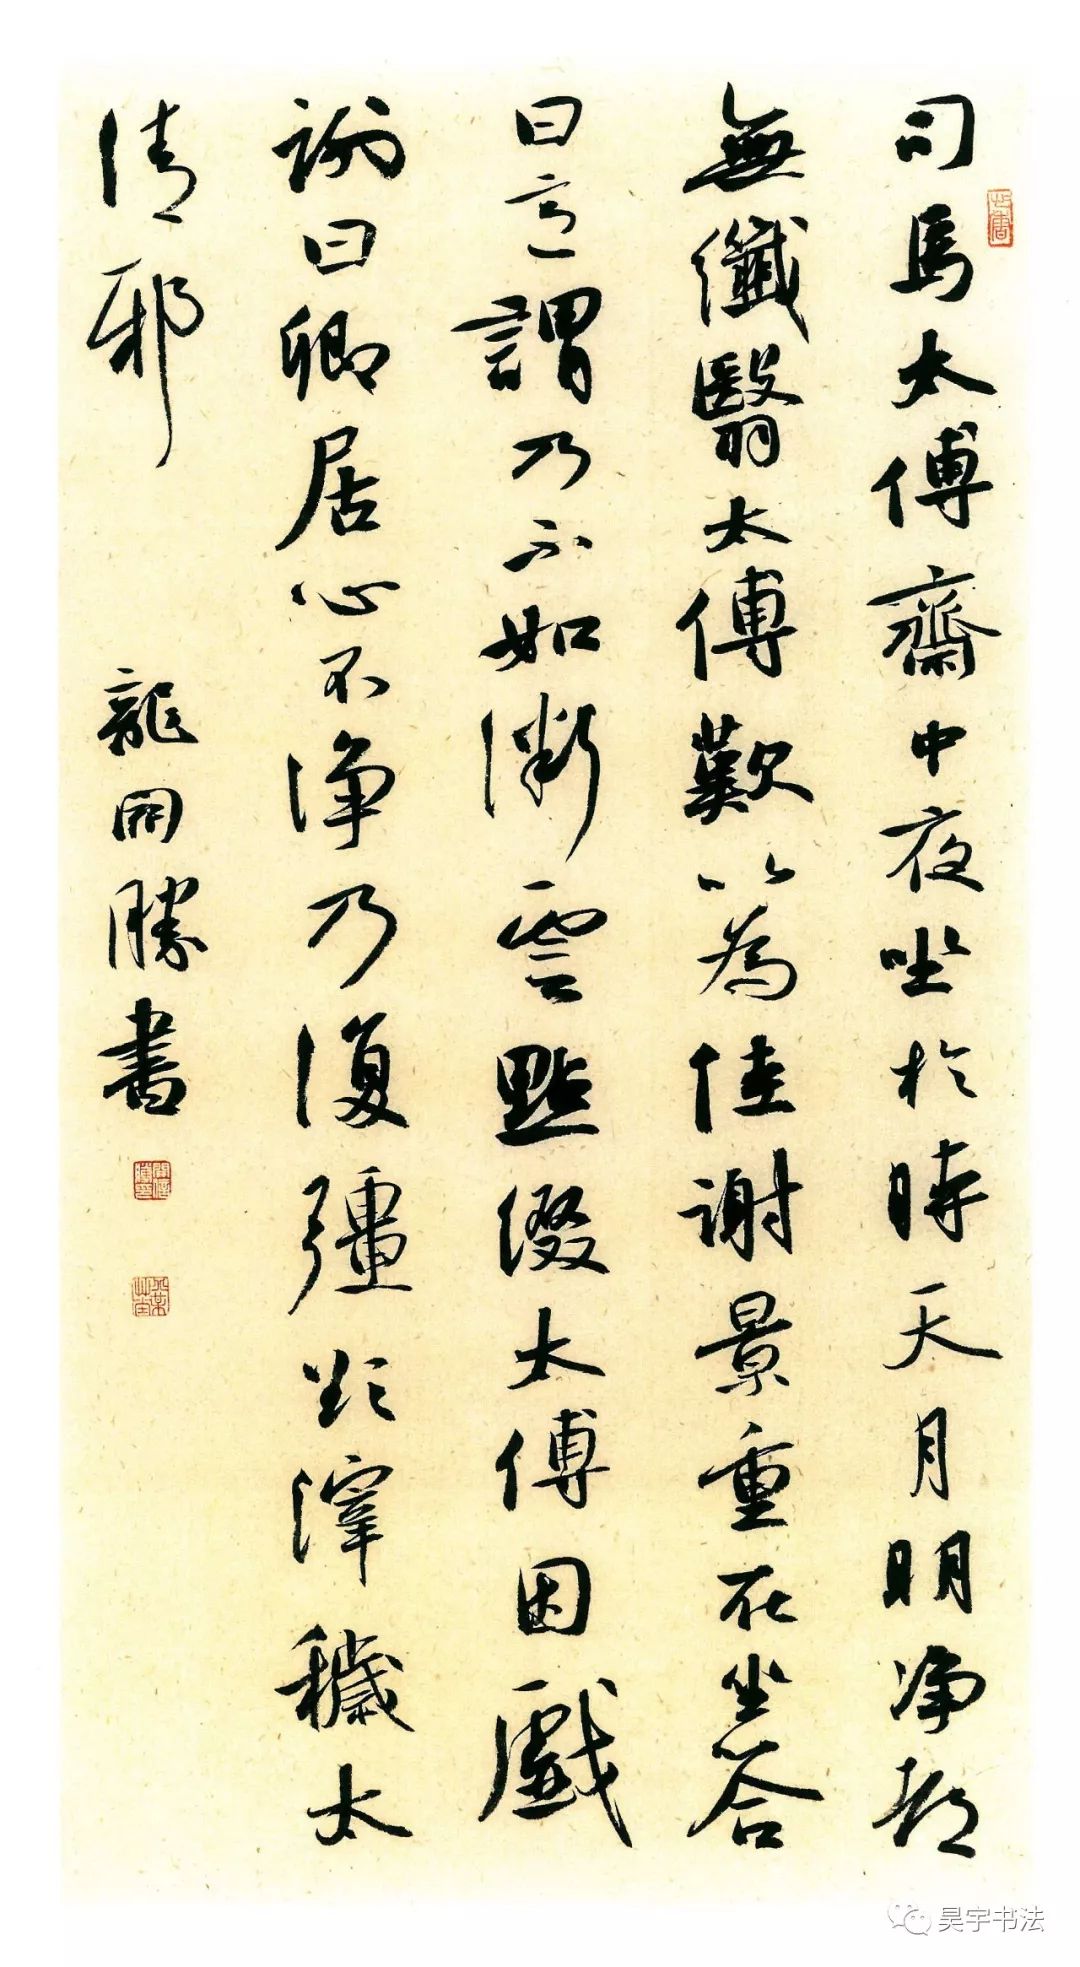 司馬太傅齋中夜坐於時天月明净都
無纖翳太傅歎以為佳謝景重在坐答
曰意謂乃不如微雲點綴太傅因戲
謝曰卿居心不净乃復彊欲滓穢太
清邪
龍開勝書
昊宇书法